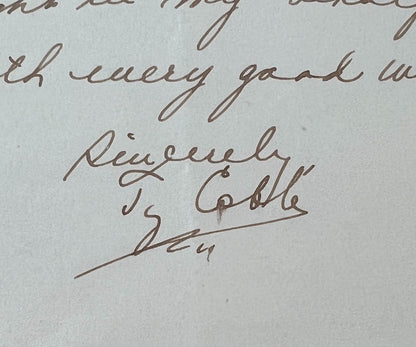 in my
th every good w
Sincerely
Ty Cobb